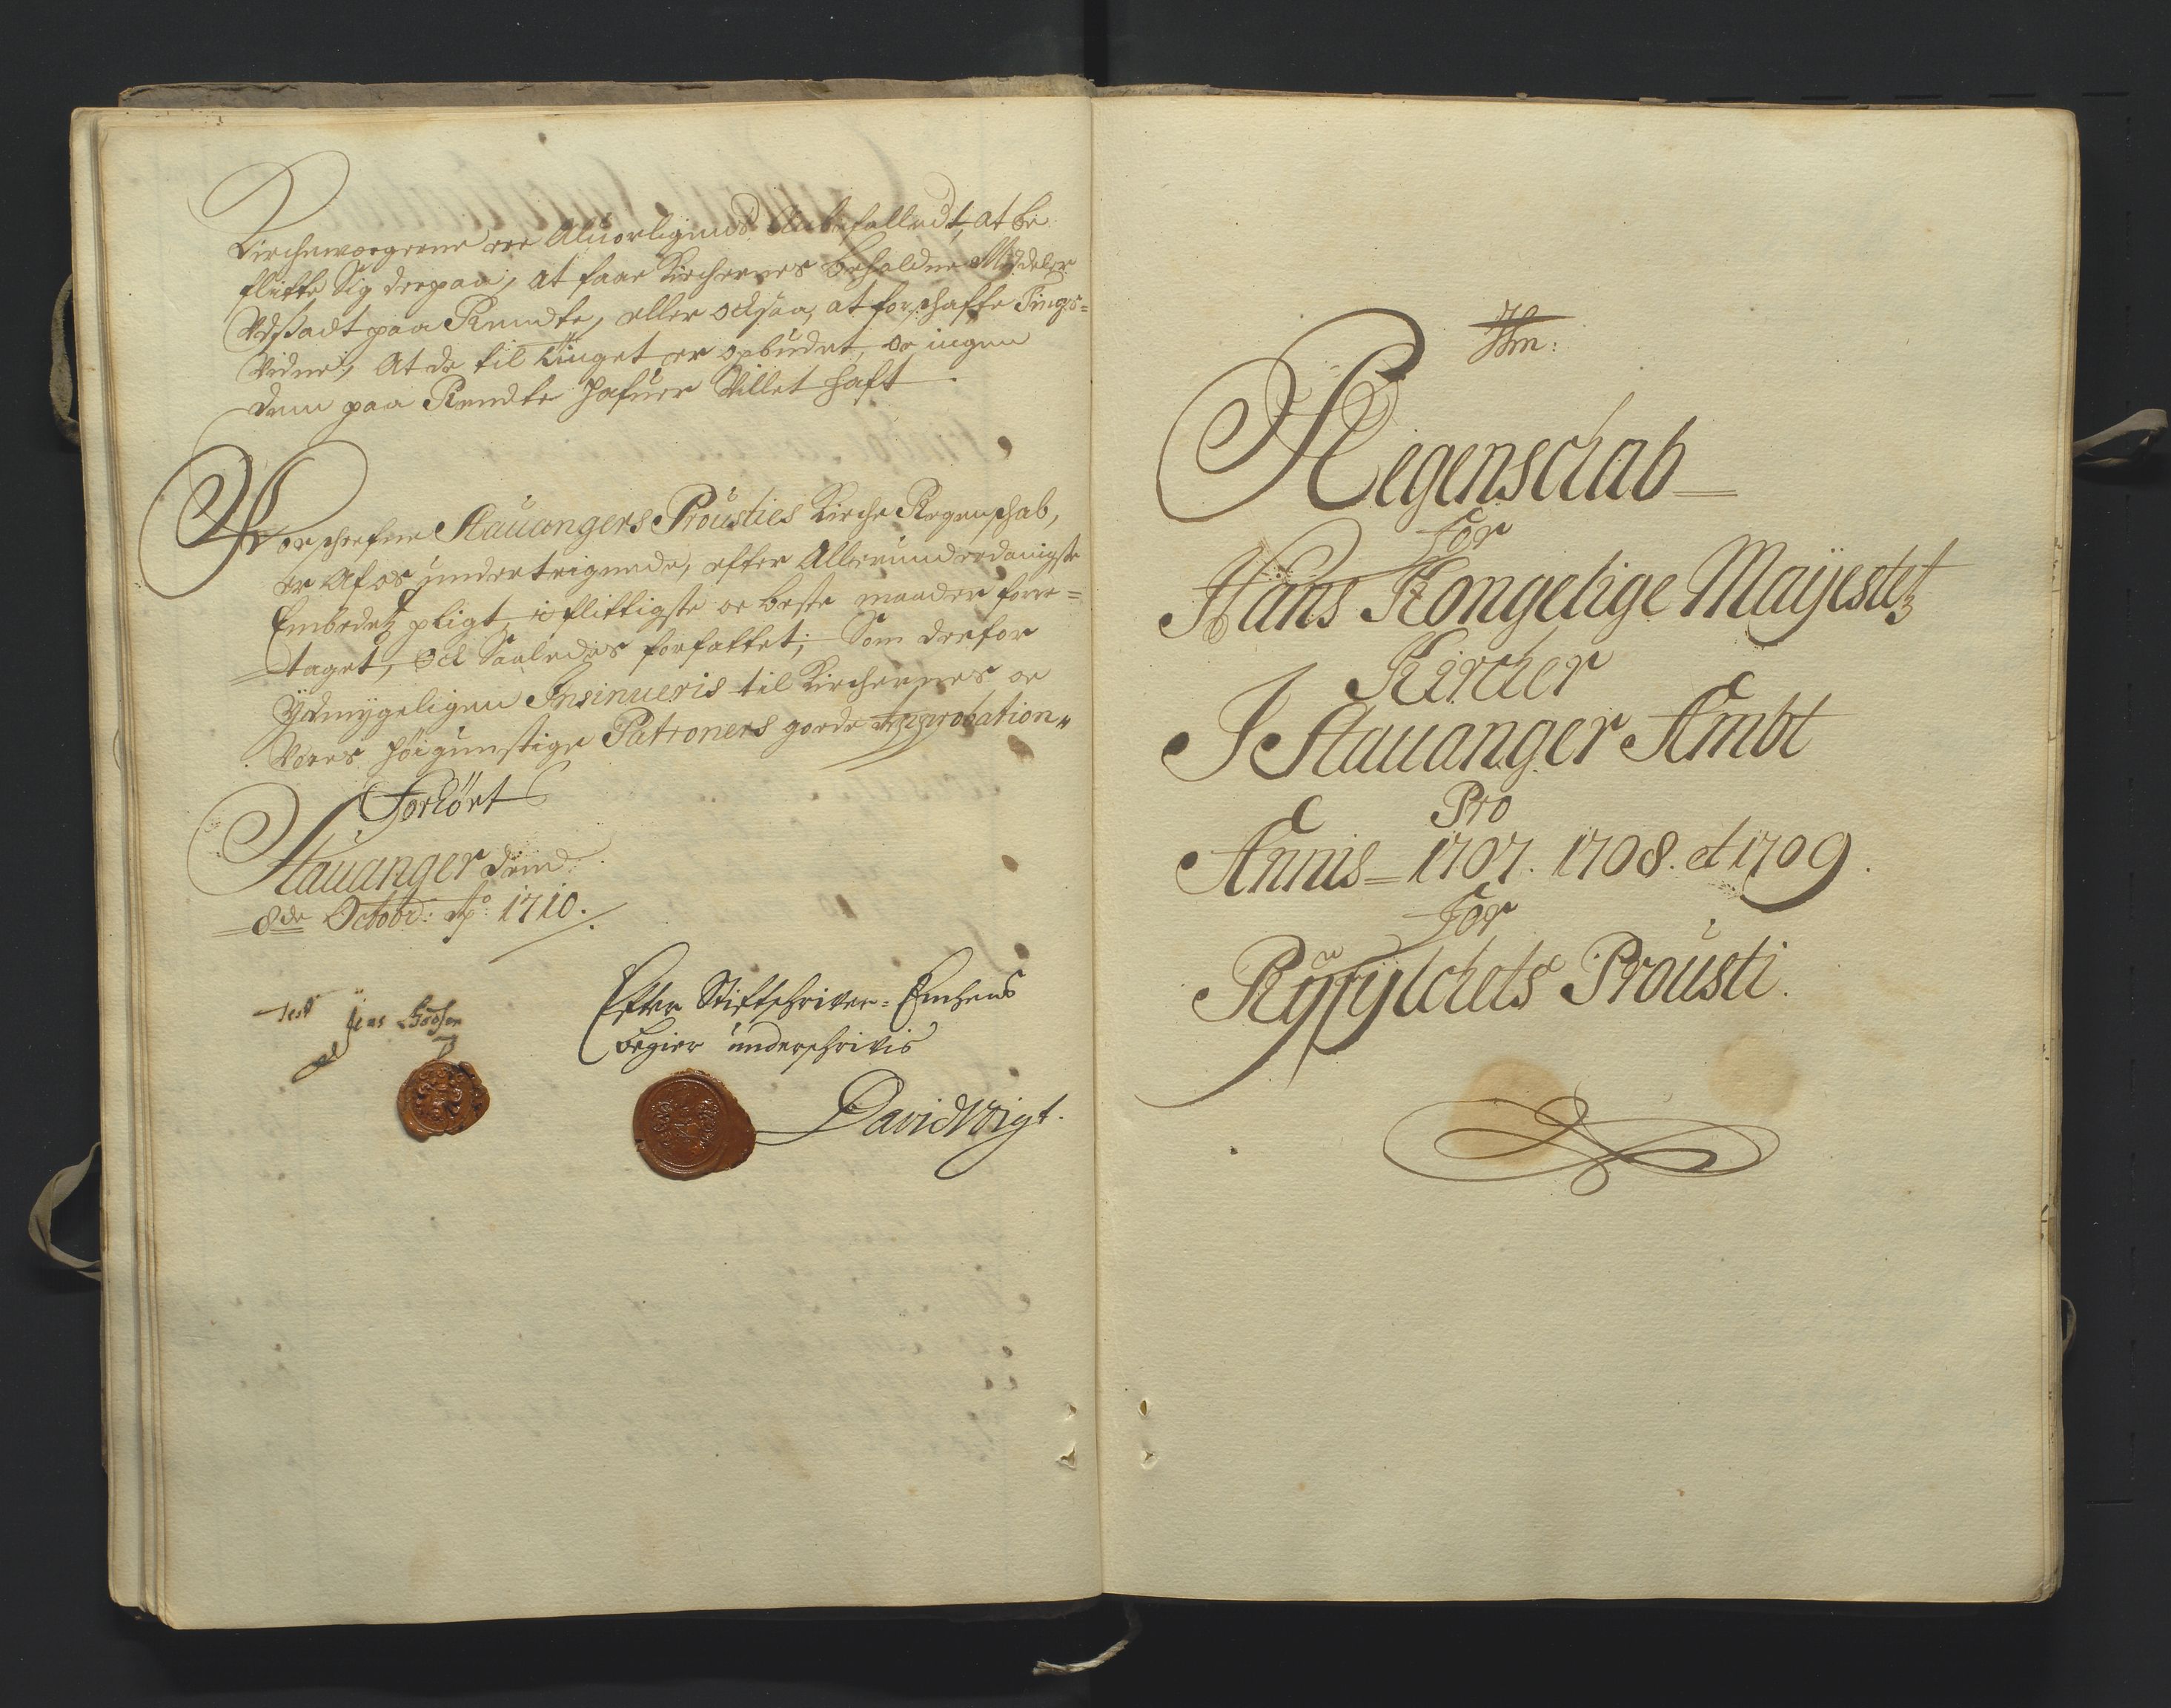 Kirchewærgerne ere Alvorligend Anbefalledt, at be
flitte Sig derpaa, at faae Kirchernes beholdne Middeler
Udsadt paa Rendte, eller och saa, at forschaffe Tings=
Vidne, At de til Tinget er opbudet, oc ingen
dem paa Rendte hafuer Villet haft.
Forschrefne Stauangers Prousties Kirche Regenschab,
er Af os undertegnede, efter Allerunderdanigste
Embedetz pligt, i flittigste oc beste maader fore=
taget, och Saaledes forfattet; Som derfor
Ydmygeligen Insinueris til Kirchernes oc
Vores høigunstige Patroners goede Approbation
Forhørt
Stauanger dend
8de Octobr: Ao: 1710.
Jens
Efter Stiftschriver
begier underschrivis
David Voigt.
Regenschab
For
Hans Kongelige Mayestetz
Kircher
I Stauanger Ambt
Pro
Annis 1707. 1708. et 1709.
For
Ryfylches Prousti.